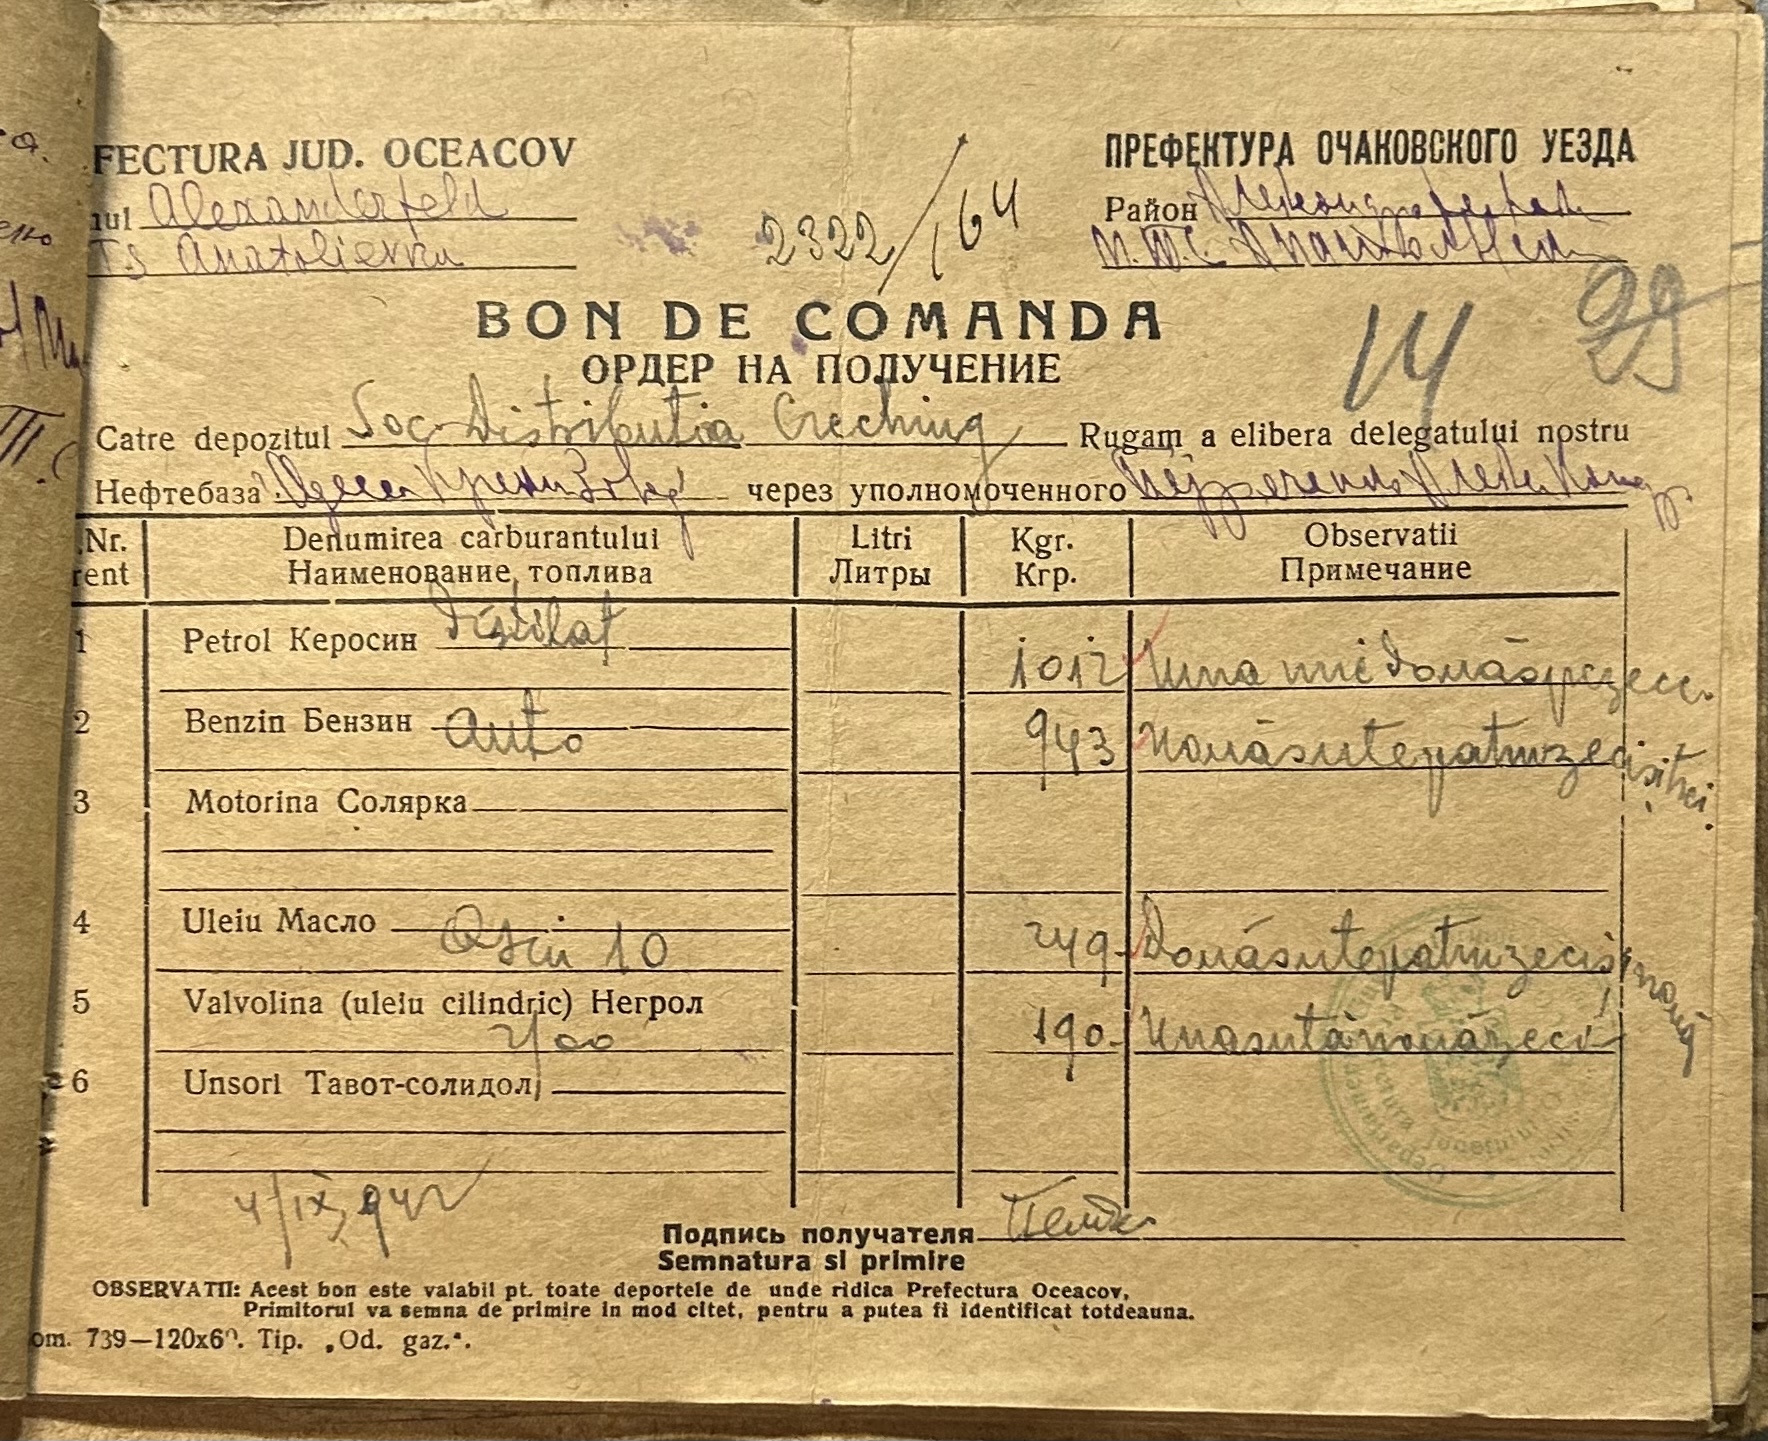 FECTURA JUD. OCEACOV
nul Alexanderfeld
TS Anatolievca
2322/164
ПРЕФЕКТУРА ОЧАКОВСКОГО УЕЗДА
Район
М.Т.С.
14
99
BON DE COMANDA
ОРДЕР НА ПОЛУЧЕНИЕ
Catre depozitul Soc. Distributia Creching Rugam a elibera delegatului nostru
Нефтебаза Одесса через уполномоченного
Nr. Denumirea carburantului Litri Kgr. Observatii
rent Наименование топлива Литры Кгр. Примечание
1 Petrol Керосин Distilat 1012 Una mie douăsprezece.
2 Benzin Бензин auto 943 Nouăsutepatruzecisitrei.
3 Motorina Солярка
4 Uleiu Масло 10 249- Douăsutepatruzecisinouă
5 Valvolina (uleiu cilindric) Негрол 190- Unasutănouăzeci
6 Unsori Тавот-солидол
4/IX, 942
Подпись получателя
Semnatura si primire
OBSERVATII: Acest bon este valabil pt. toate deportele de unde ridica Prefectura Oceacov,
Primitorul va semna de primire in mod citet, pentru a putea fi identificat totdeauna.
om. 739—120x60. Tip. „Od. gaz.“.